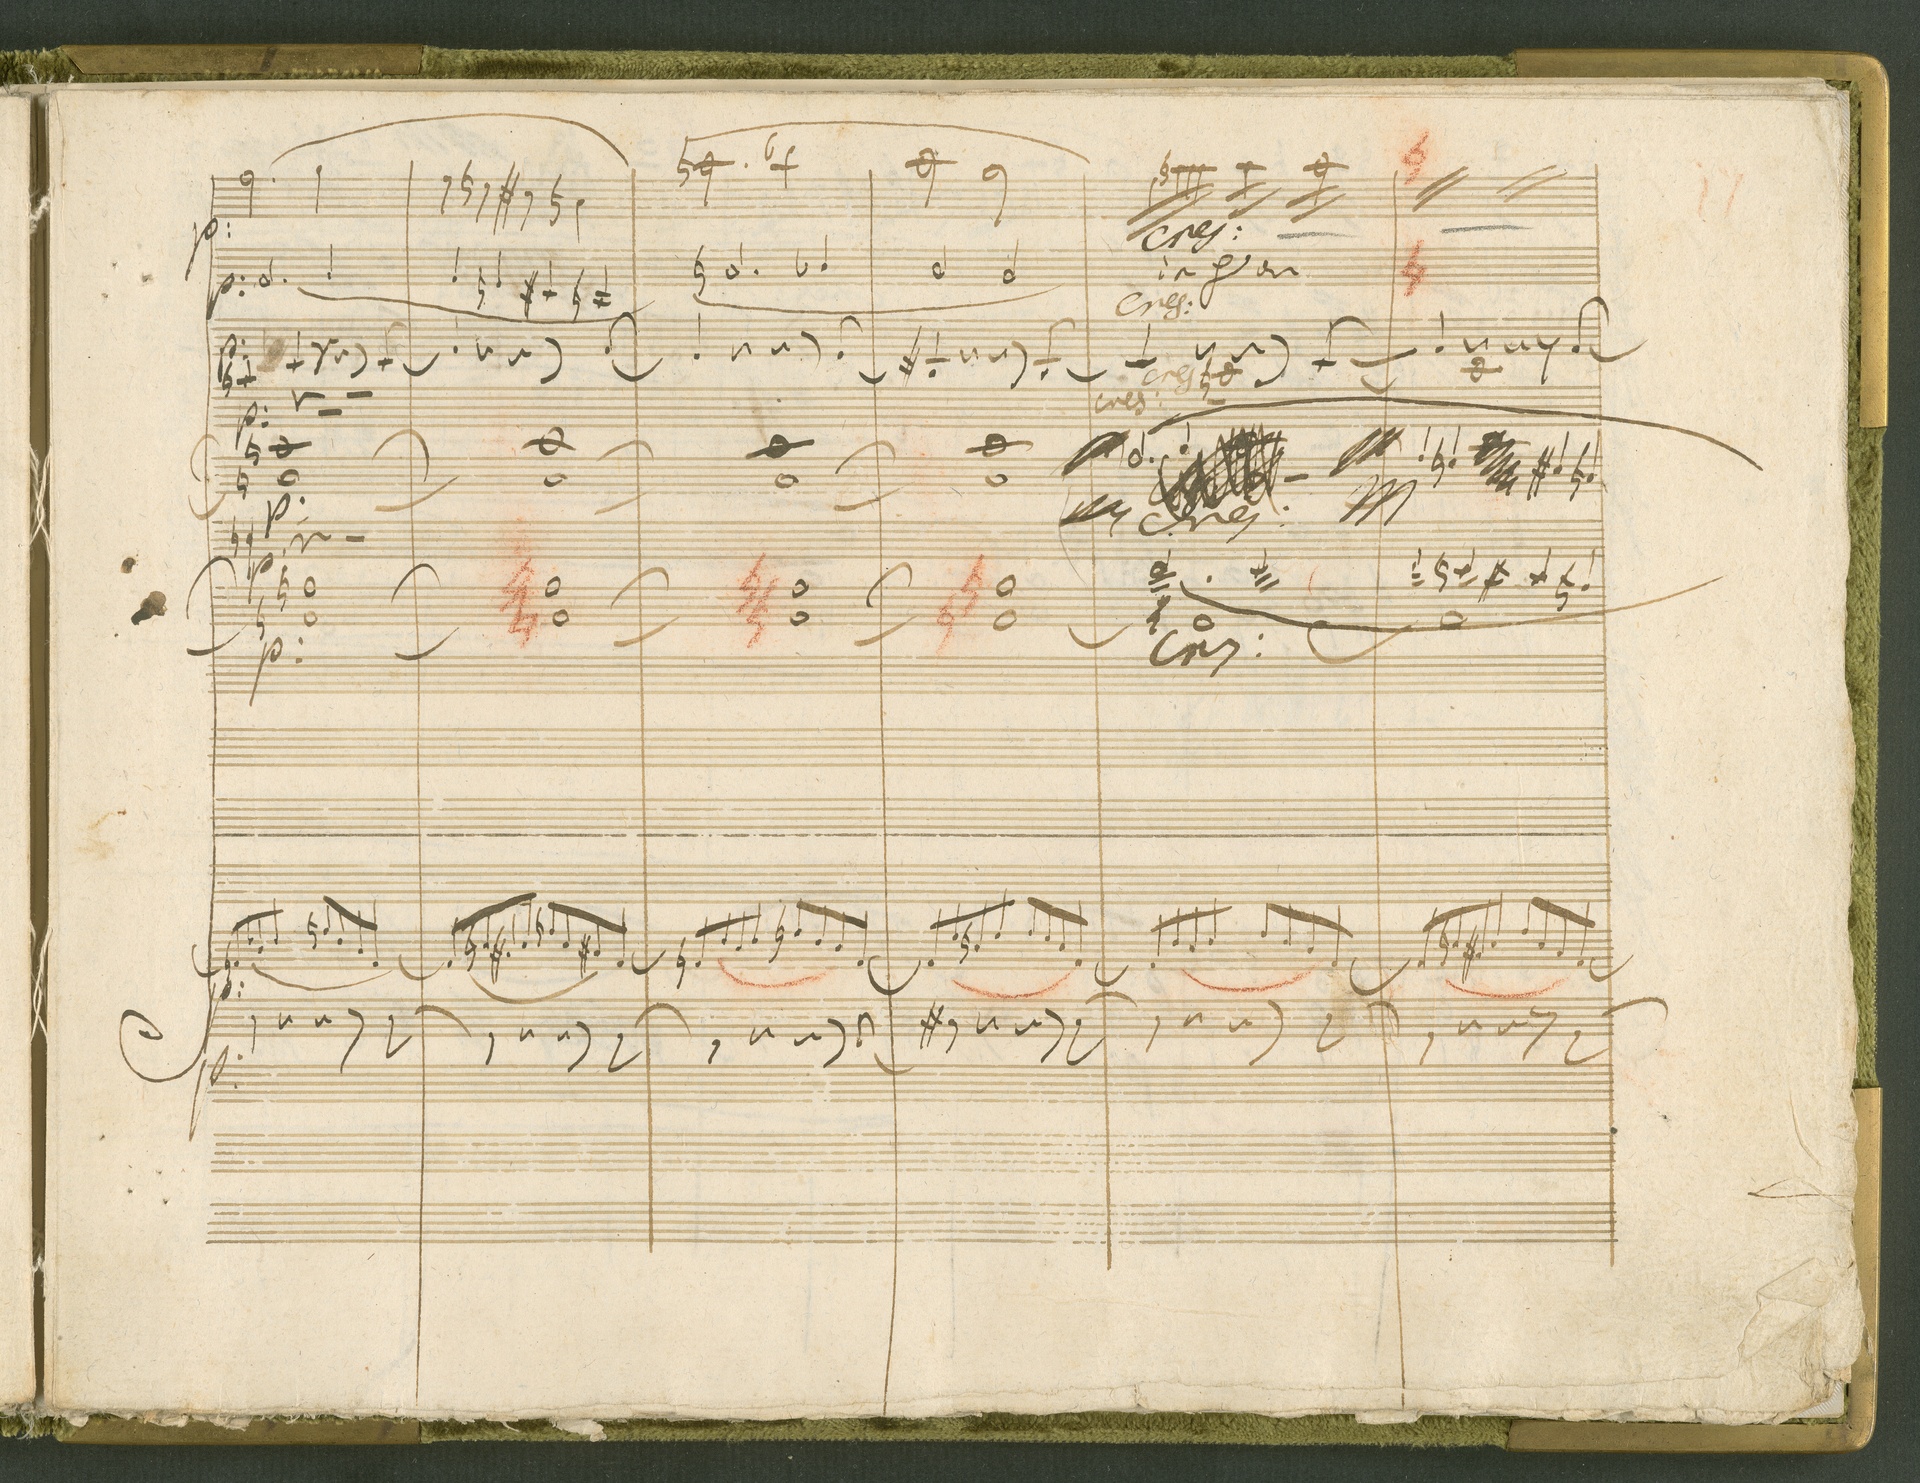 17
p:
cres:
p:
in 8va
cres:
p:
cres
p:
cres:
p:
cres:
p:
p:
cres:
p:
p: